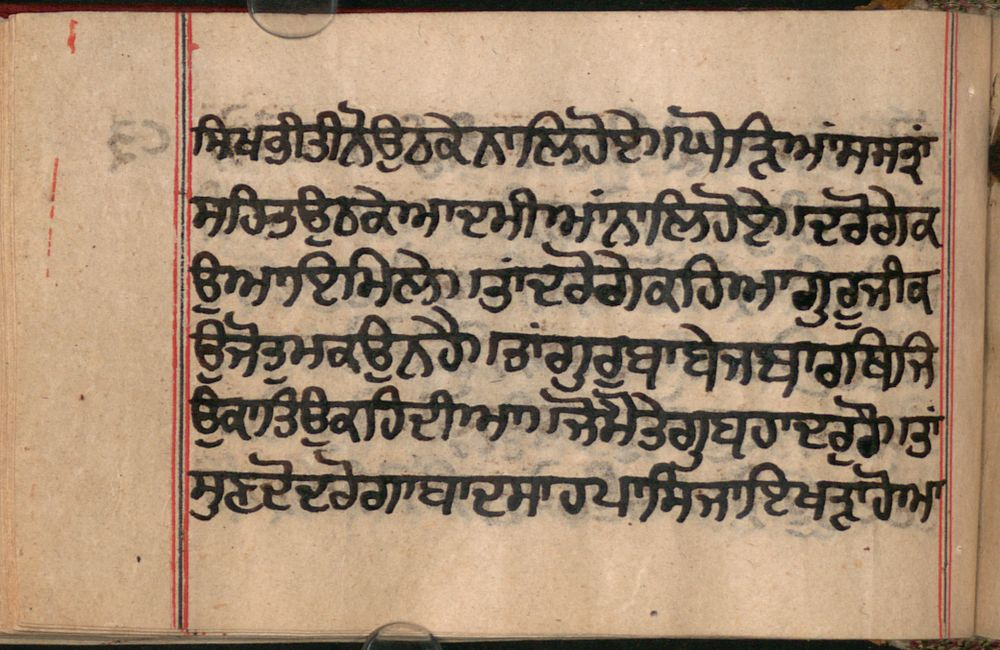 ਸਿਖਭੀਤੀਨੋਉਠਕੇਨਾਲਿਹੋਏ।ਘੋੜਿਆਂਸਸਤ੍ਰਾਂ
ਸਹਿਤਉਠਕੇਆਦਮੀਆਂਨਾਲਿਹੋਏ।ਦਰੋਗੇਕ
ਉਆਇਮਿਲੇ।ਤਾਂਦਰੋਗੇਕਹਿਆਗੁਰੂਜੀਕ
ਉਜੋਤੁਮਕਉਨਹੈ।ਤਾਂਗੁਰੂਬਾਬੇਜਬਾਰਾਖਿਜਿ
ਉਕਾਤਿਉਕਹਿਦੀਆ।ਜੋਮੈਤੇਗੁਬਹਾਦਰੁਹੈ।ਤਾਂ
ਸੁਣਦੋਦਰੋਗਾਬਾਦਸਾਹਪਾਸਿਜਾਇਖੜਾਹੋਆ